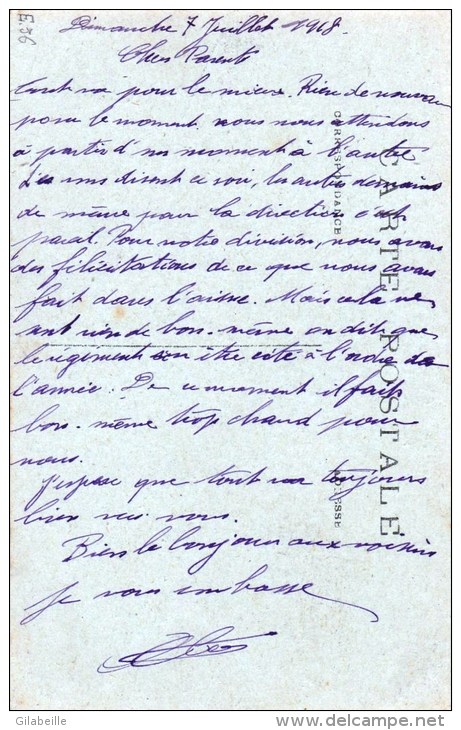 E.36
Dimanche 7 Juillet 1918.
Chers Parents
tout va pour le mieux. Rien de nouveau
pour le moment nous nous attendons
à partir d'un moment à l'autre
Les uns disent ce soir, les autres demain
de même pour la direction c'est
pareil. Pour notre division, nous avons
des félicitations de ce que nous avons
fait dans l'aisne. Mais cela ne
vaut rien de bon. même on dit que
le régiment va être cité à l'ordre de
l'armée. De ce moment il fait
bon. même trop chaud pour
nous.
J'espère que tout va toujours
bien chez vous.
Bien le bonjour aux voisins
je vous embrasse
CARTE POSTALE
CORRESPONDANCE
ADRESSE
Gilabeille